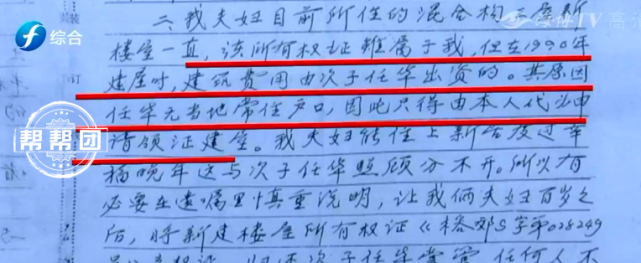 综合
帮帮团
二、我夫妇目前所住的混合构三层新
楼屋一直，该所有权证虽属于我，但在1990年
建屋时，建筑费用由次子任华出资的。其原因
任华无当地常住户口，因此只得由本人代为申
请领证建屋。我夫妇能住上新舍度过幸
福晚年这与次子任华照顾分不开。所以有
必要在遗嘱里慎重说明，让我俩夫妇百岁之
后，将新建楼屋所有权证《榕郊S字第028249
次子任华掌管，任何人不